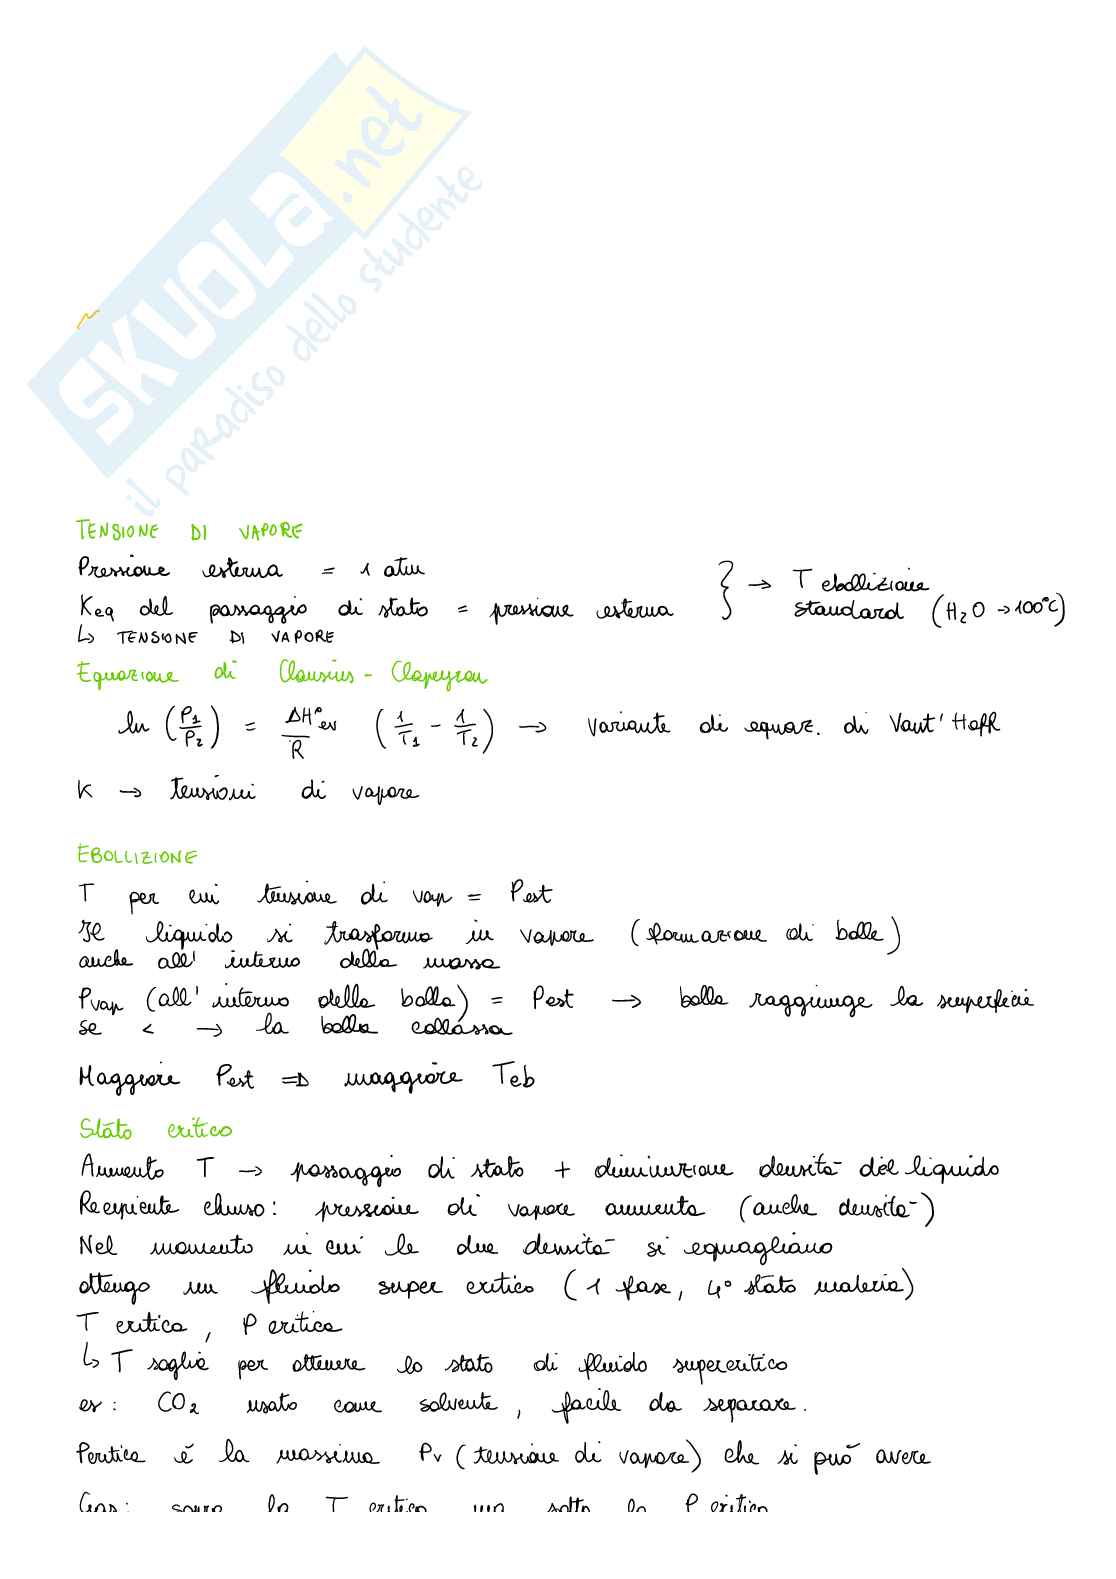 SKUOLa.net
il paradiso dello studente
TENSIONE DI VAPORE
Pressione esterna = 1 atm
Keq del passaggio di stato = pressione esterna } → T ebollizione standard (H2O → 100°C)
↳ TENSIONE DI VAPORE
Equazione di Clausius - Clapeyron
ln (P1/P2) = ΔH°ev/R (1/T1 - 1/T2) → variante di equaz. di Vant' Hoff
K → tensioni di vapore
EBOLLIZIONE
T per cui tensione di vap = Pest
Il liquido si trasforma in vapore (formazione di bolle)
anche all' interno della massa
Pvap (all' interno della bolla) = Pest → bolla raggiunge la superficie
se < → la bolla collassa
Maggiore Pest ⇒ maggiore Teb
Stato critico
Aumento T → passaggio di stato + diminuzione densità del liquido
Recipiente chiuso: pressione di vapore aumenta (anche densità)
Nel momento in cui le due densità si eguagliano
ottengo un fluido super critico (1 fase, 4° stato materia)
T critica, P critica
↳ T soglia per ottenere lo stato di fluido supercritico
es: CO2 usato come solvente, facile da separare.
Pcritica è la massima Pv (tensione di vapore) che si può avere
Gas: sopra la T critica ma sotto la P critica